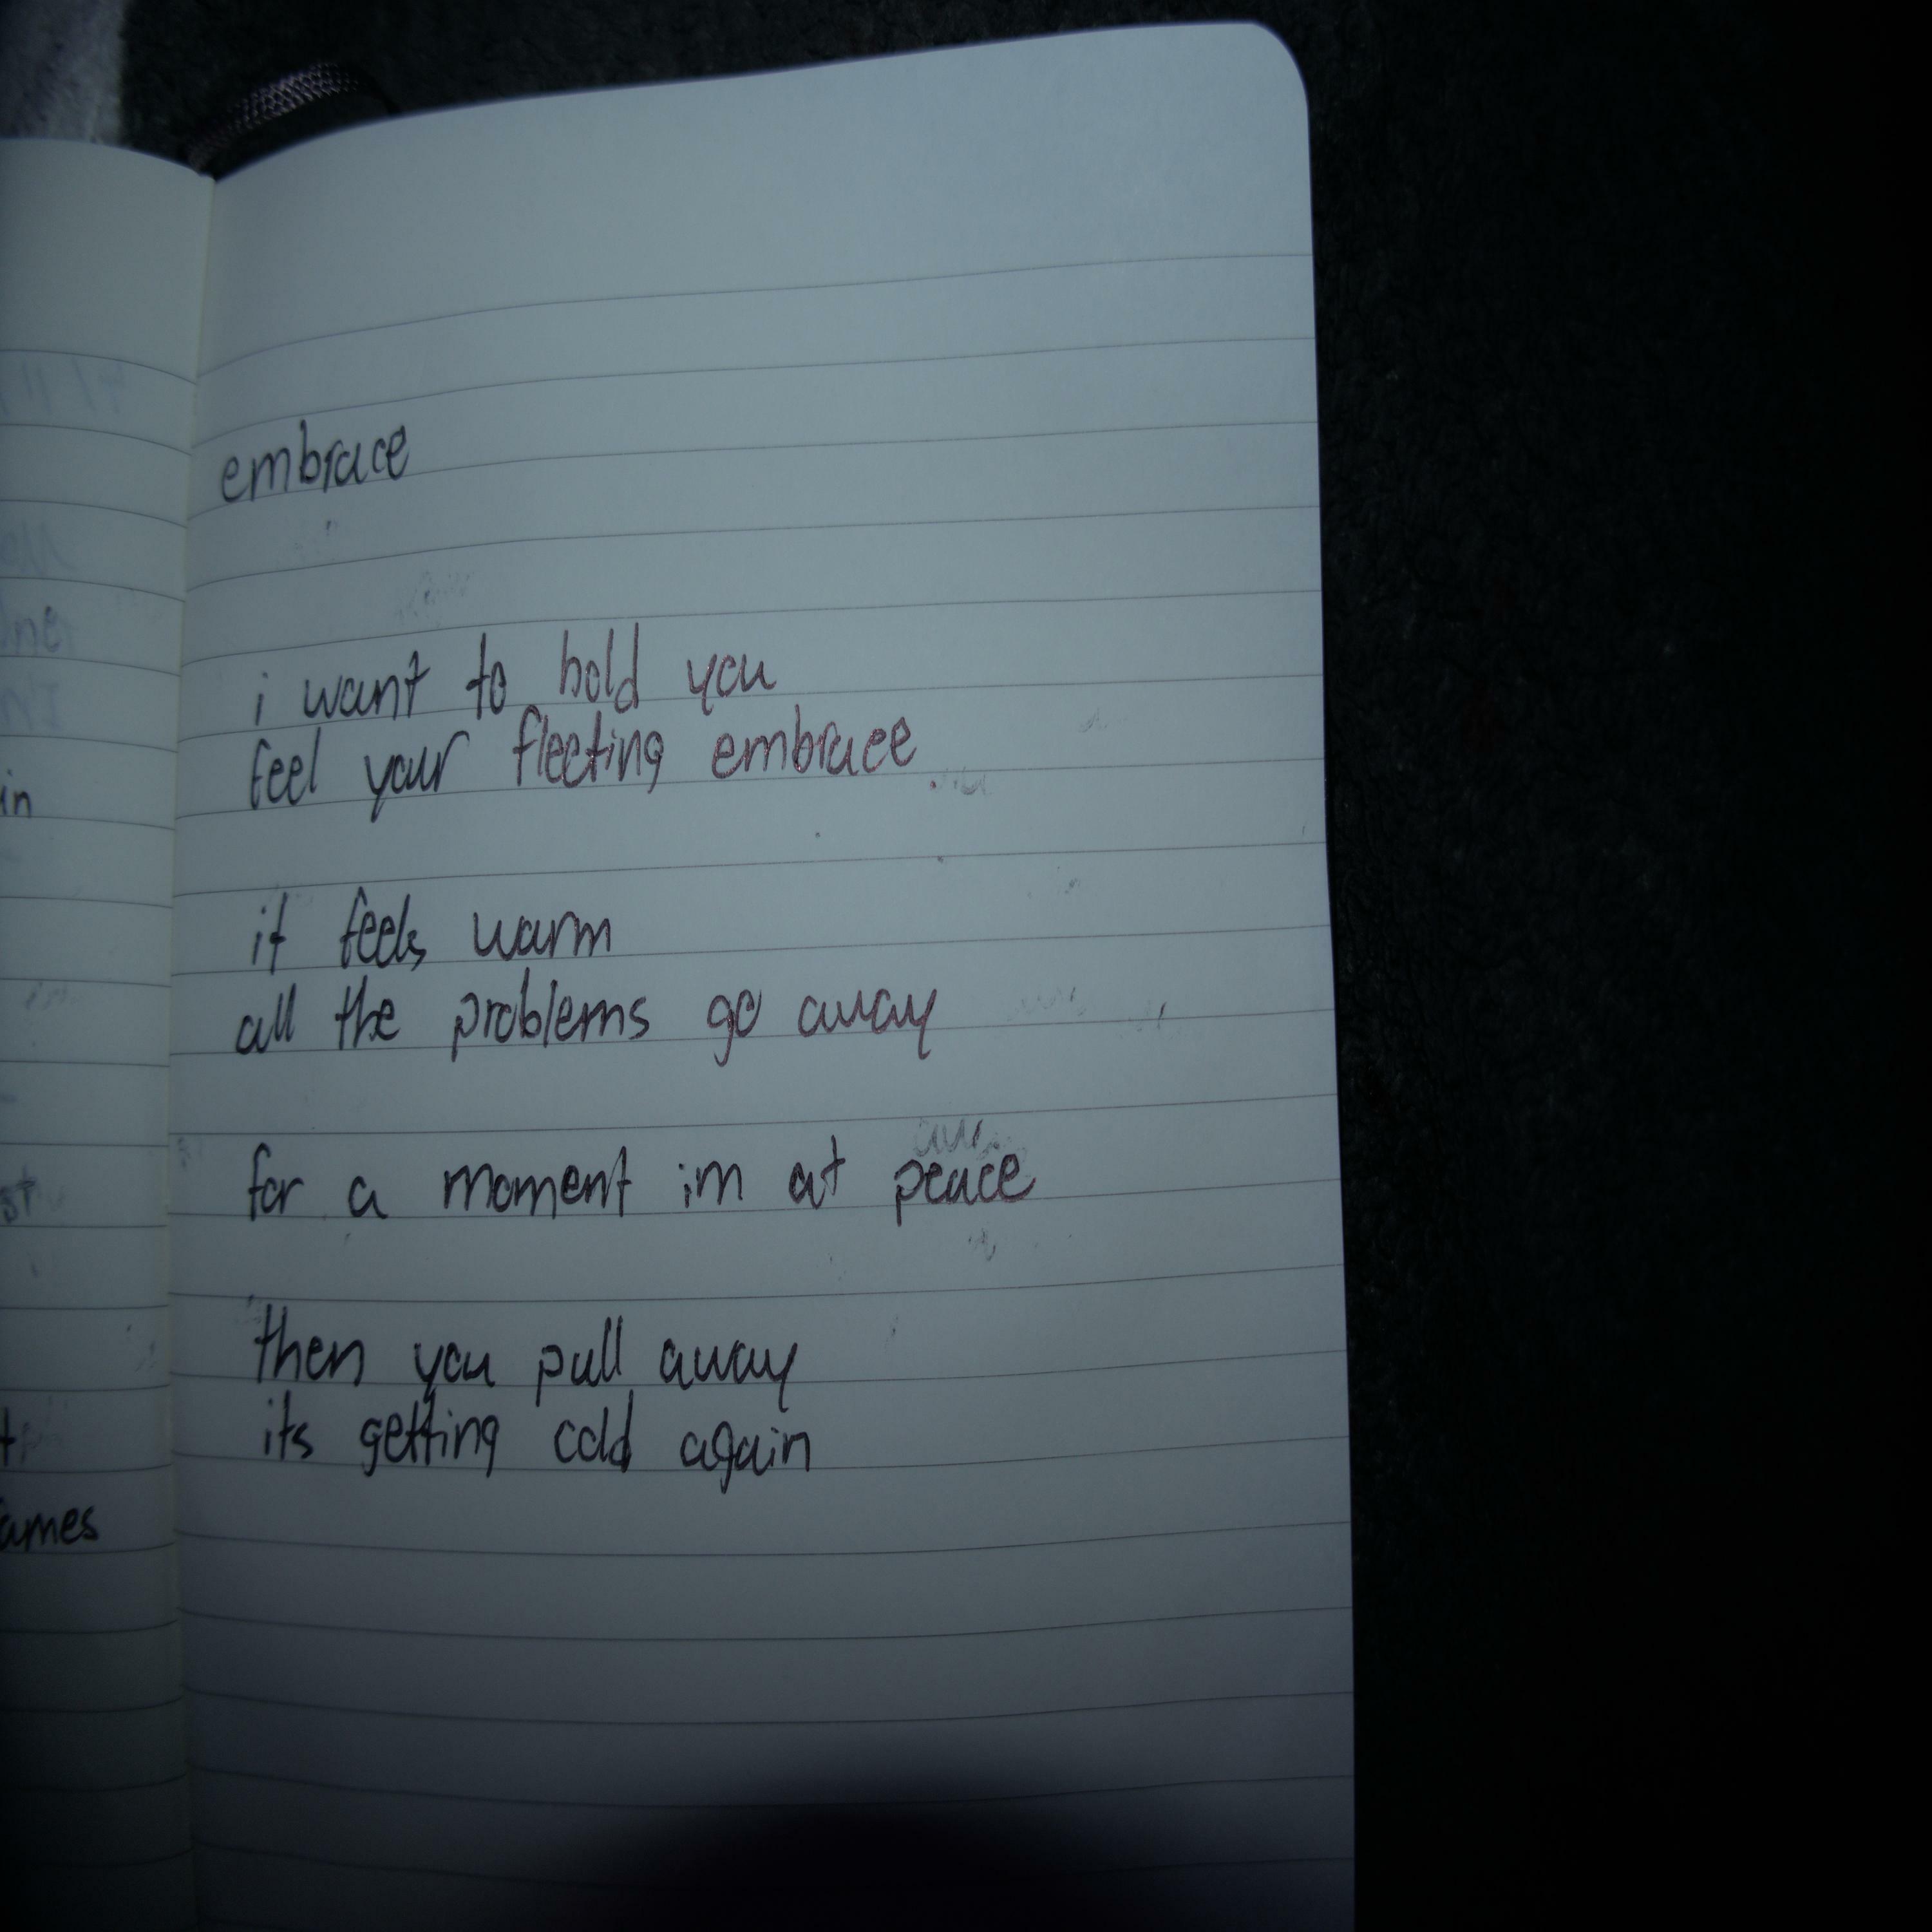 embrace
i want to hold you
feel your fleeting embrace
it feels warm
all the problems go away
for a moment im at peace
then you pull away
its getting cold again
in
st
ames